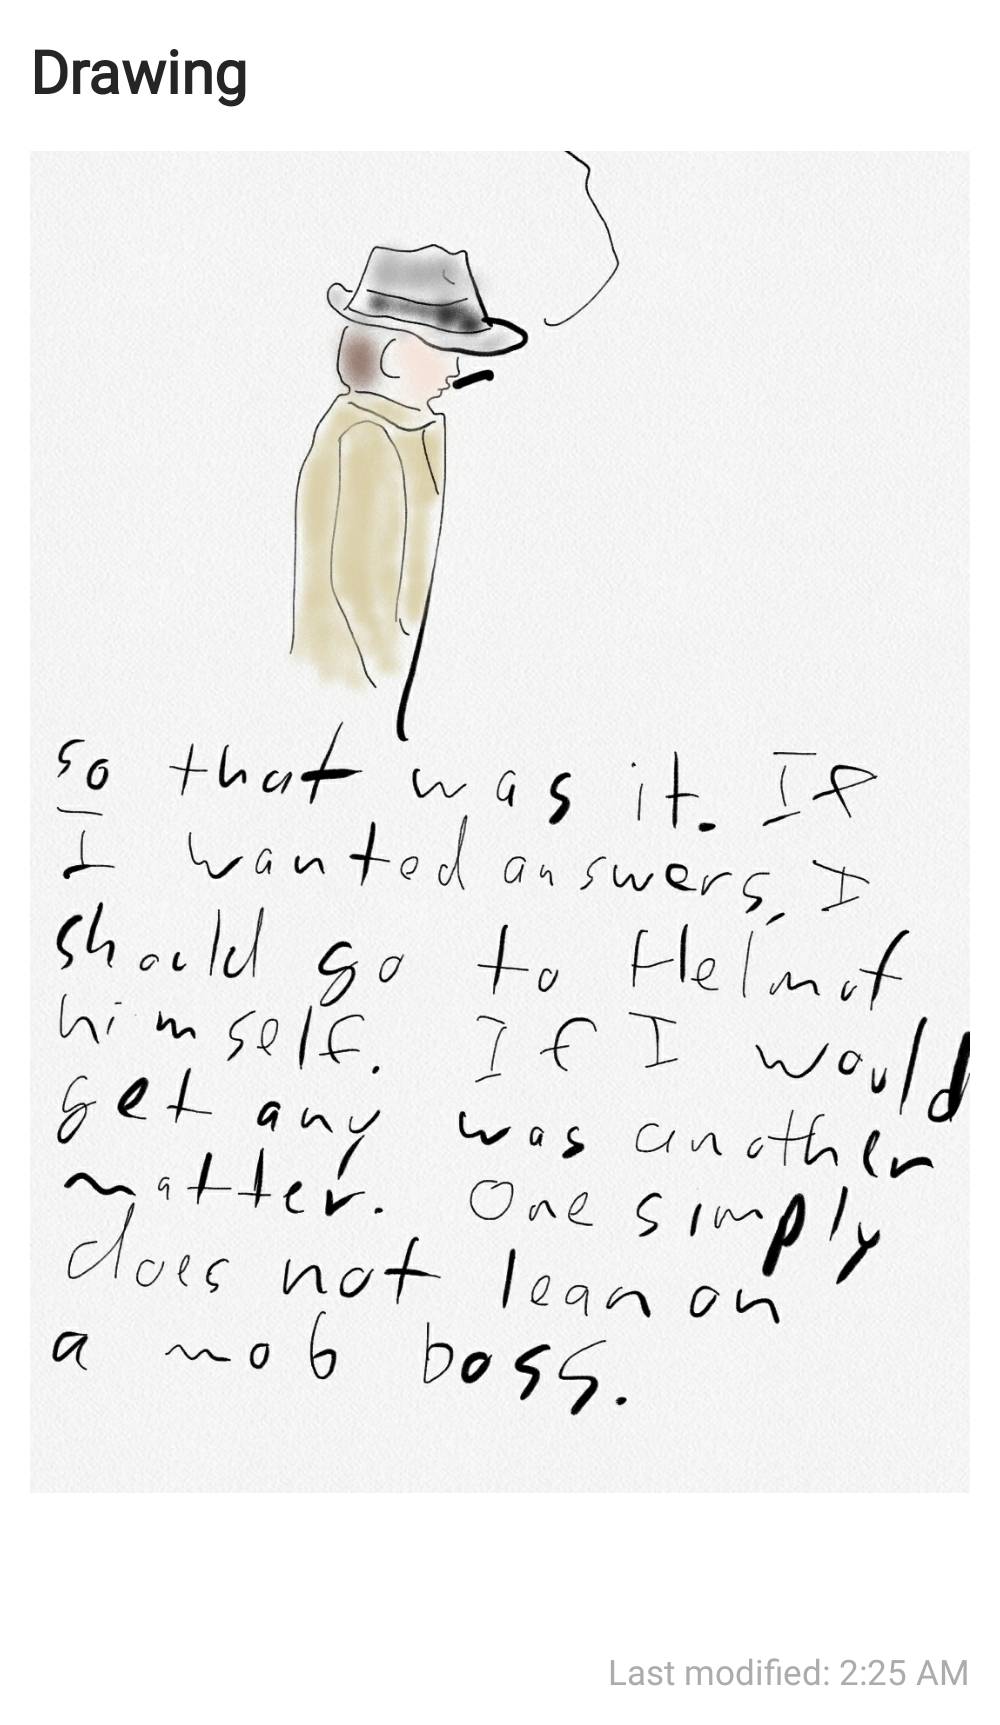 Drawing
so that was it. If
I wanted answers, I
should go to Helmut
himself. If I would
get any was another
matter. One simply
does not lean on
a mob boss.
Last modified: 2:25 AM